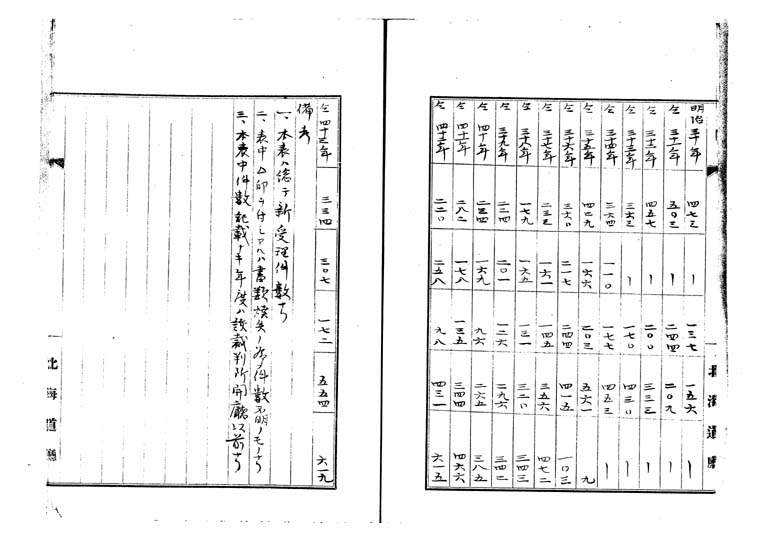 明治三十年 四七三 一 一三七 一五六 一
仝 三十一年 五〇三 一 二四四 二〇九 一
仝 三十二年 四五七 一 二〇〇 三三三 一
仝 三十三年 三六三 一 一七〇 四三〇 一
仝 三十四年 二六四 一一〇 一七七 四五三 一
仝 三十五年 四二九 一六六 二〇三 五六一 九
仝 三十六年 三六〇 二一七 二四四 四一五 一〇三
仝 三十七年 二三三 一六一 一四五 三五六 四七二
仝 三十八年 一七九 一六五 一三一 三二〇 三四三
仝 三十九年 二二四 二〇一 一二六 二九六 三四二
仝 四十年 二三四 一六九 九六 二六五 三八五
仝 四十一年 二八二 一七八 一三五 三四四 四六六
仝 四十二年 二二〇 二五八 九八 四三一 六一五
北海道廳
仝 四十三年 三三四 三〇七 一七二 五五四 六一九
備考
一、本表ハ総テ新受理件數ナリ
二、表中△印ヲ付シアルハ書類焼失ノ為メ件數不明ノモノナリ
三、本表中件數記載ナキ年度ハ該裁判所開廳以前ナリ
北海道廳